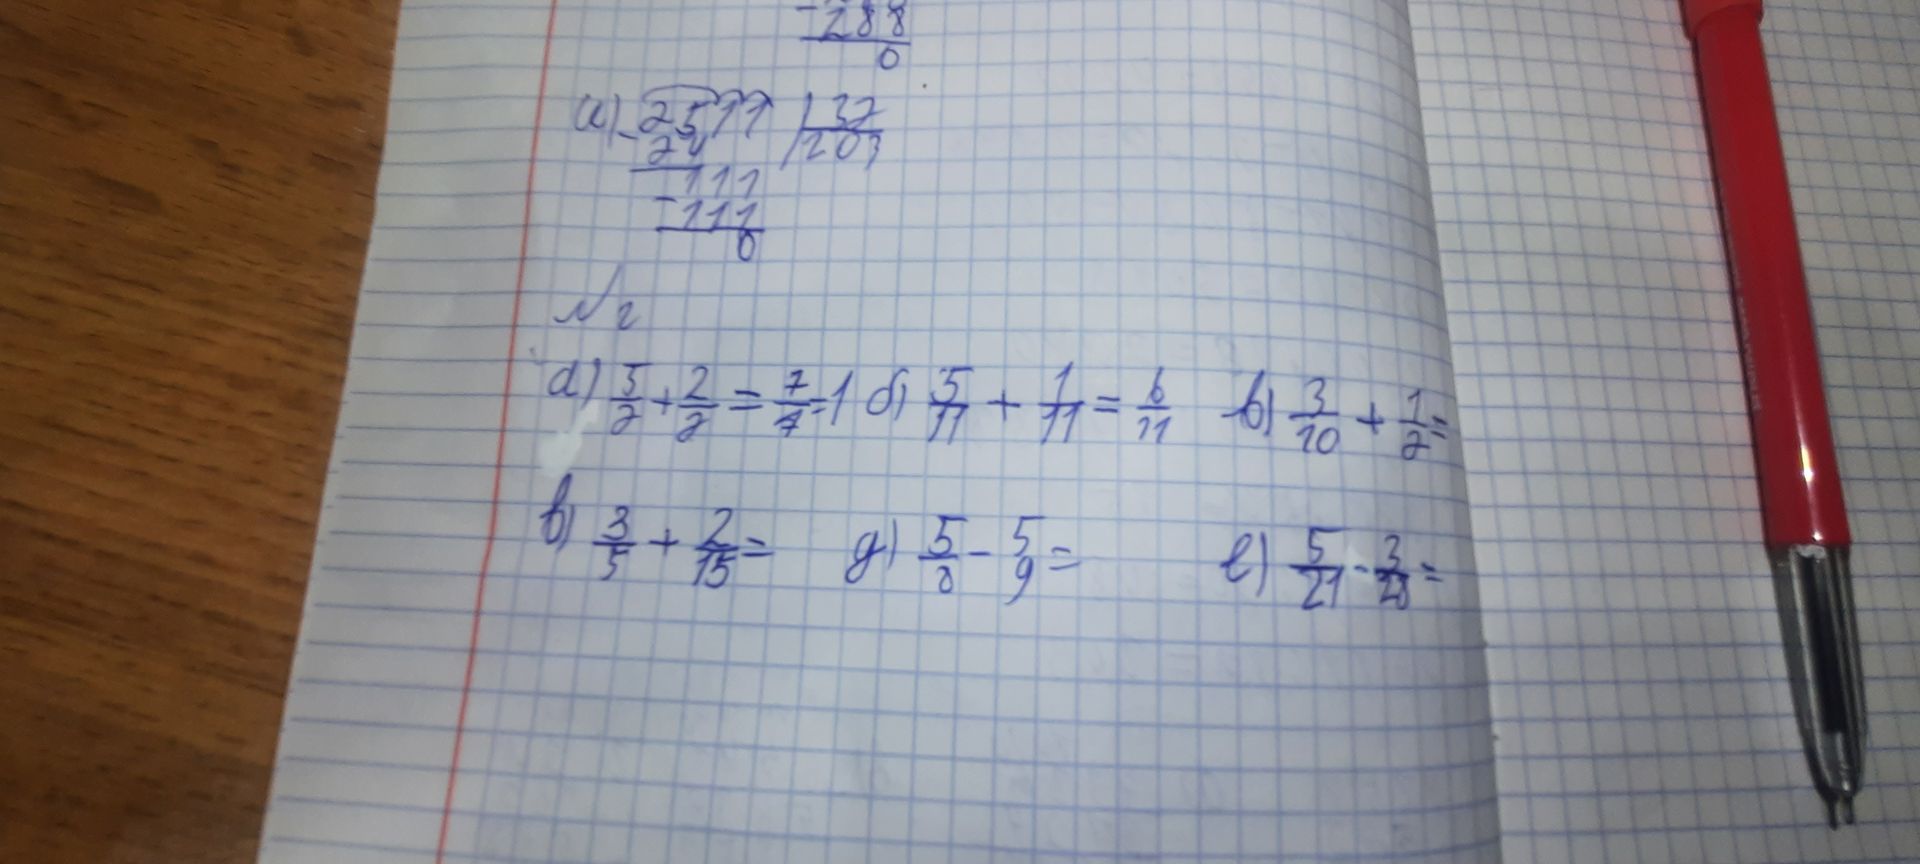 -288
0
а) 2511 | 37
- 24 | 203
111
-111
0
№2
а) 5/7 + 2/7 = 7/7 = 1 б) 5/11 + 1/11 = 6/11 в) 3/10 + 1/2 =
в) 3/5 + 2/15 = д) 5/8 - 5/9 = е) 5/21 - 3/28 =